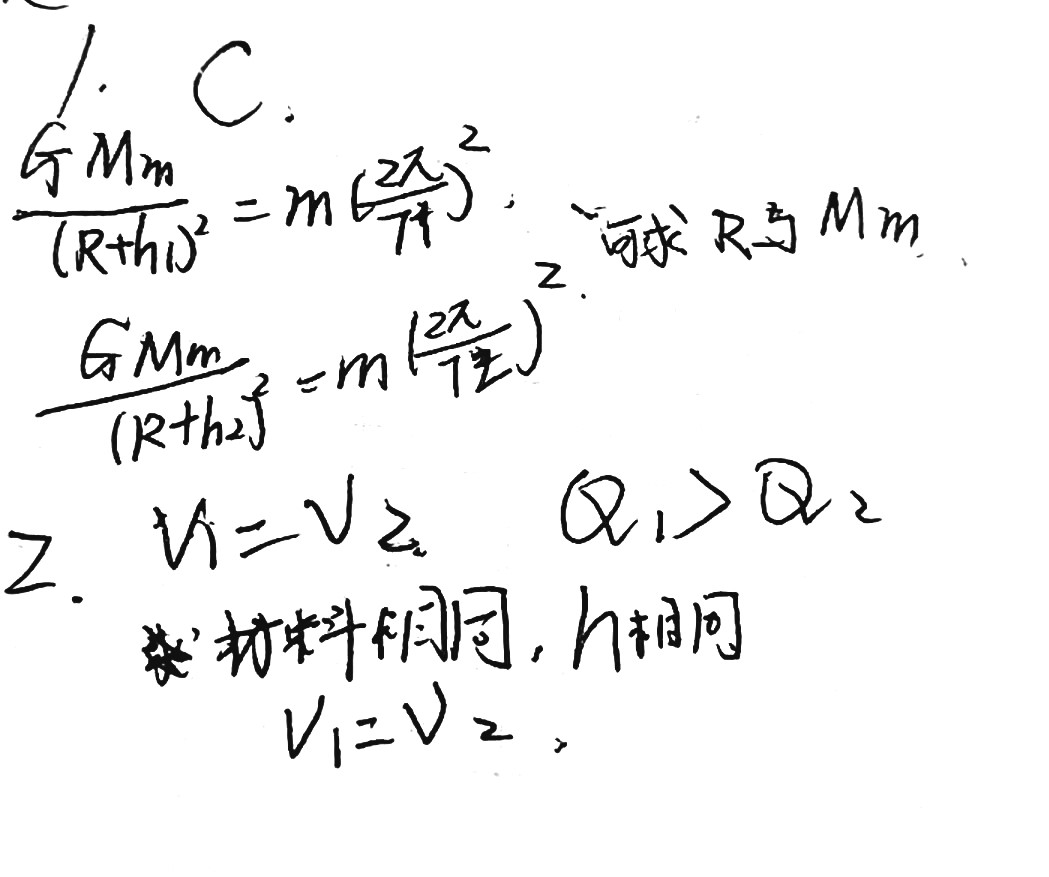 1. C.
GMm/(R+h1)² = m(2π/T1)². 可求R与Mm.
GMm/(R+h2)² = m(2π/T2)².
2. V1=V2. Q1>Q2
材料相同, h相同
V1=V2.